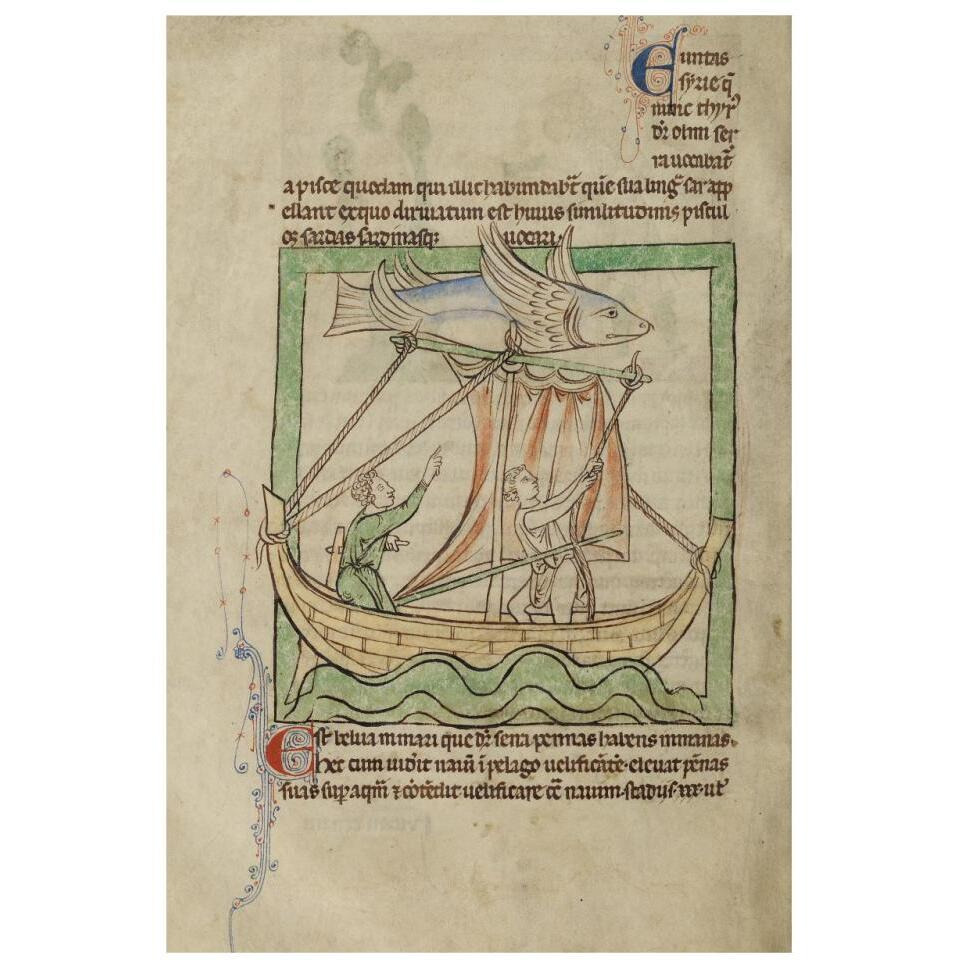 Euntas
syrie q̄
nunc thyr᷒
dr̄ olim ser
ra uocabat᷑
a pisce quodam qui illic habundabt̄ quē sua ling᷑ sar app
ellant ex quo diriuatum est huius similitudinis piscul
os sardas sardinasq; uocari.
Est belua in mari que dr̄ serra pennas habens inmanas.
hec cum uiderit nauī ī pelago uelificātē. eleuat pēnas
suas sup aqm̄ ⁊ cōtēdit uelificare cē nauim. stadijs. xxx. ut᷑